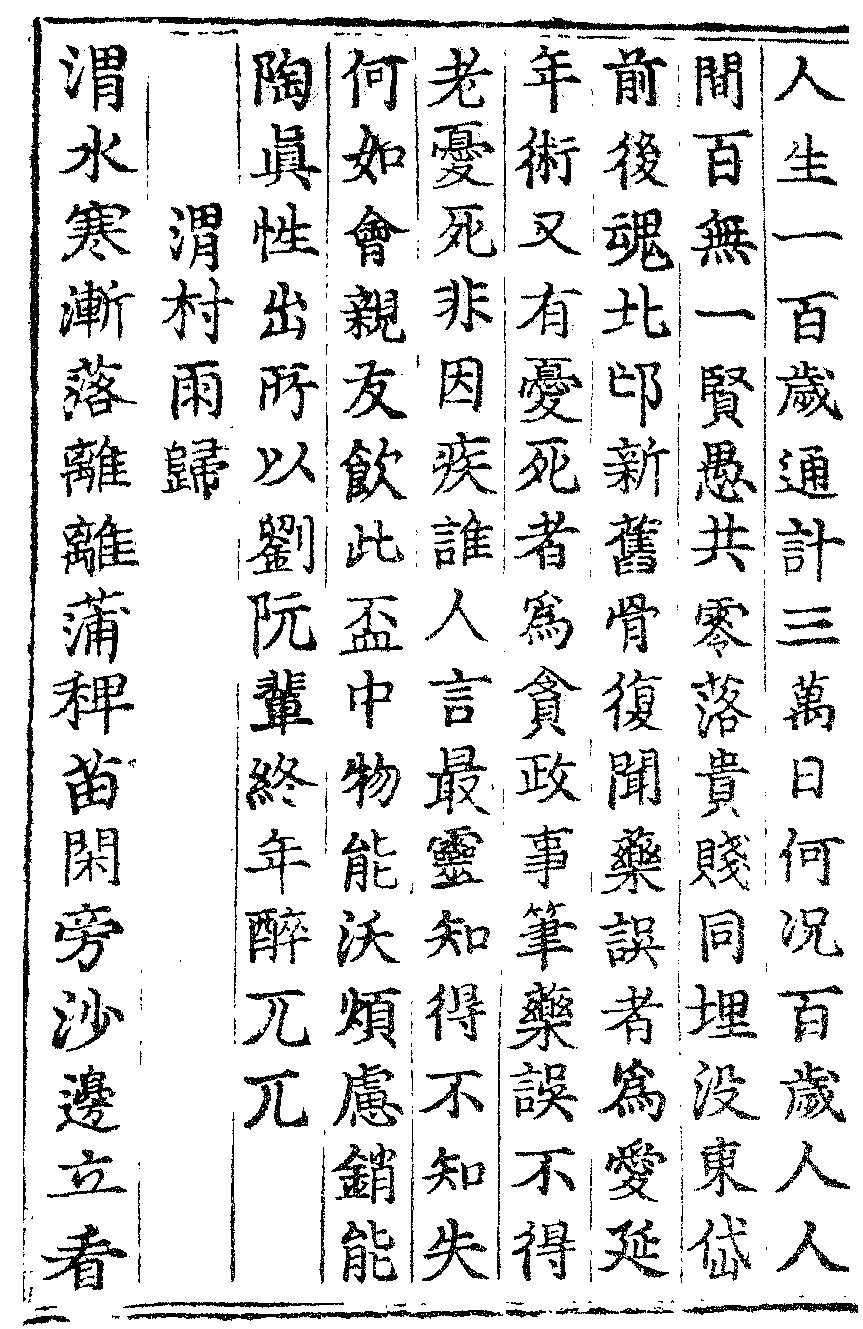 人生一百歲通計三萬日何况百歲人人
間百無一賢愚共零落貴賤同埋没東岱
前後魂北邙新舊骨復聞藥誤者爲愛延
年術又有憂死者爲貪政事筆藥誤不得
老憂死非因疾誰人言最靈知得不知失
何如會親友飲此盃中物能沃煩慮銷能
陶眞性出所以劉阮輩終年醉兀兀
渭村雨歸
渭水寒漸落離離蒲稗苗閑旁沙邊立看